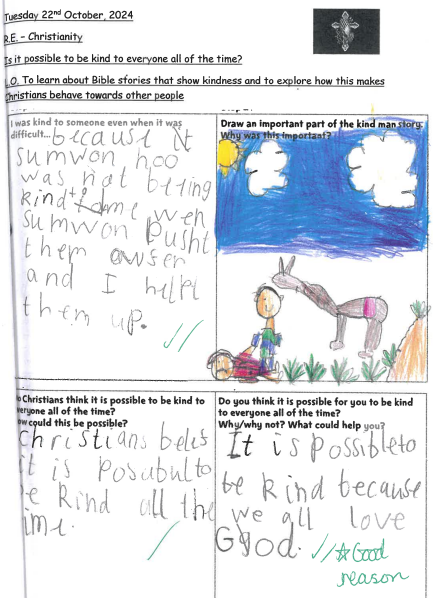 Tuesday 22nd October, 2024
R.E. – Christianity
Is it possible to be kind to everyone all of the time?
L.O. To learn about Bible stories that show kindness and to explore how this makes
Christians behave towards other people
I was kind to someone even when it was
difficult... because it
sumwon hoo
was not being
kind to me wen
sumwon pusht
them
and I helpt
them up.
Draw an important part of the kind man story.
Why was this important?
Do Christians think it is possible to be kind to
everyone all of the time?
How could this be possible?
Christians
it is posabul to
be kind all the
time.
Do you think it is possible for you to be kind
to everyone all of the time?
Why/why not? What could help you?
It is possible to
be kind because
we all love
God. ☆ Good
reason